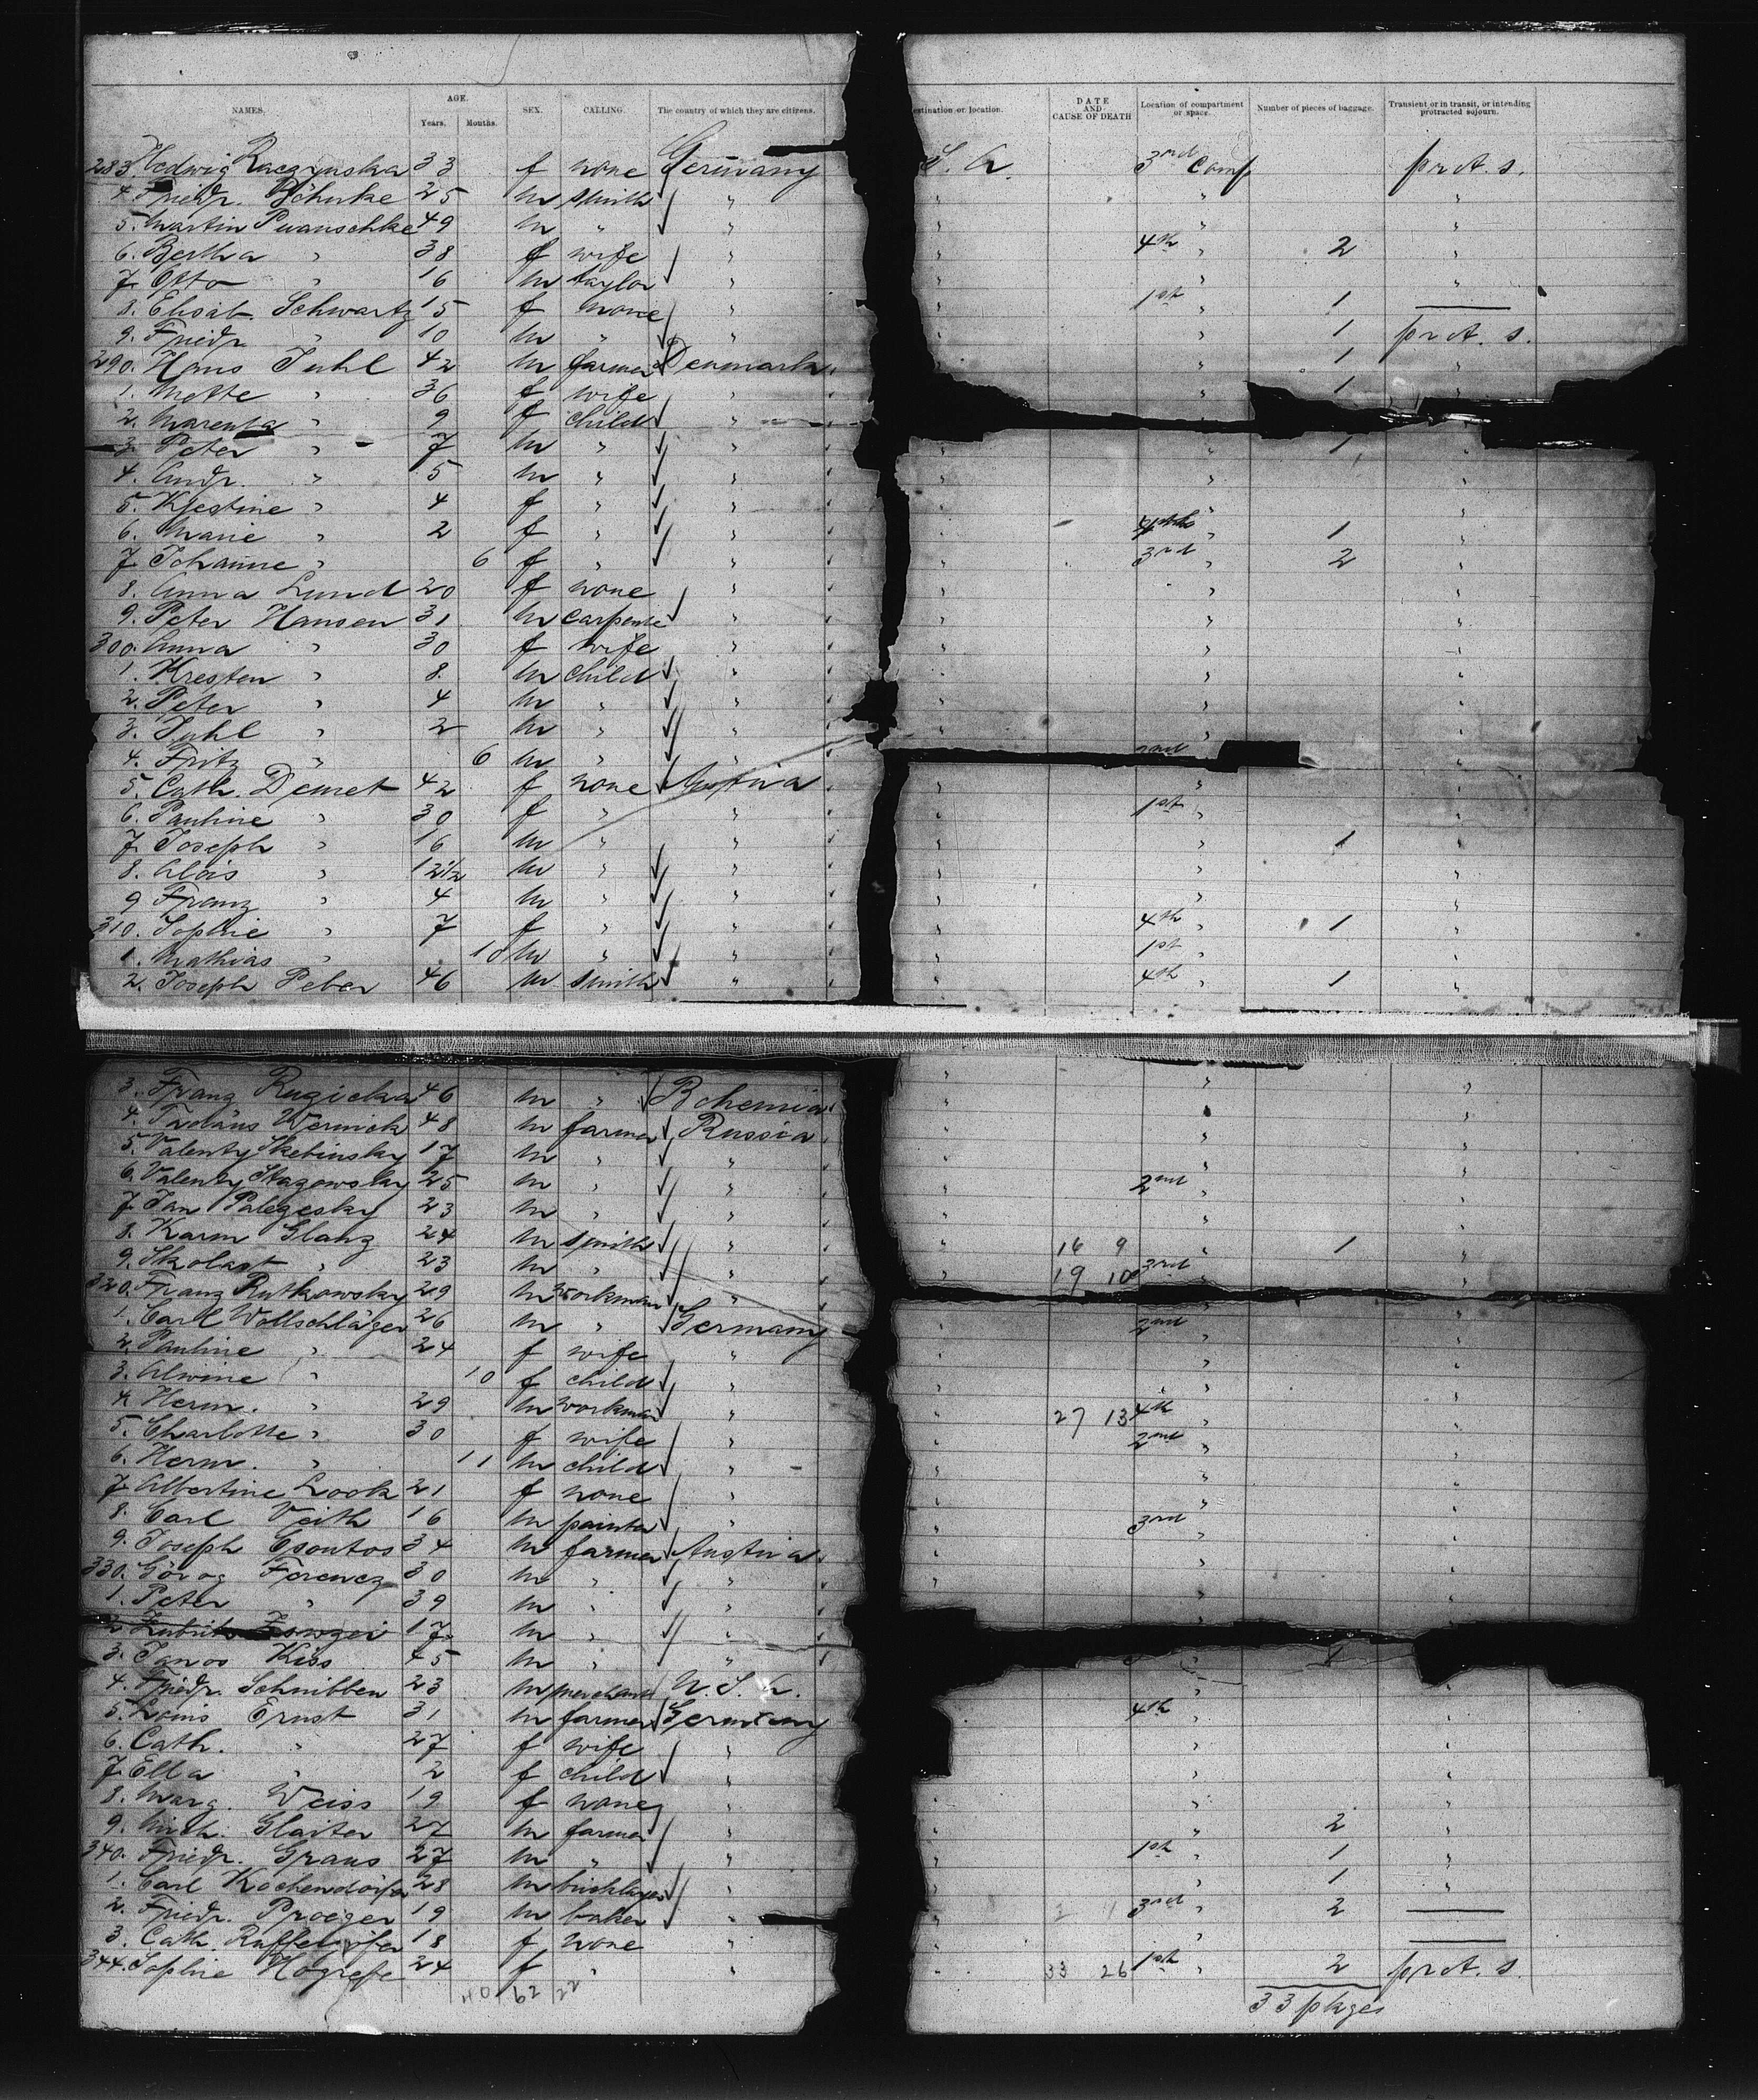 NAMES. AGE. Years. Months. SEX. CALLING. The country of which they are citizens. estination or location. DATE AND CAUSE OF DEATH Location of compartment or space. Number of pieces of baggage. Transient or in transit, or intending protracted sojourn.
283. Hedwig Raczynska 33 f none Germany S. A. 3rd Comp prot. s.
4. Friedr. Böhnke 25 m smith " " " "
5. Martin Pwanschke 49 m " " " " "
6. Bertha " 38 f wife " " 4th " 2 "
7. Otto " 16 m taylor " " " "
8. Elisab. Schwartz 15 f none " " 1st " 1 —
9. Friedr. " 10 m " " " " 1 prot. s.
290. Hans Juhl 42 m farmer Denmark " " 1 "
1. Mette " 36 f wife " " 1 "
2. Marenta " 9 f child "
3. Peter " 7 m " " " " 1 "
4. Andr. " 5 m " " " " "
5. Kjestine " 4 f " " " " "
6. Marie " 2 f " " " " 1 "
7. Johanne " 6 f " " " 3rd " 2 "
8. Anna Lund 20 f none " " " "
9. Peter Hansen 31 m carpente " " " "
300. Anna " 30 f wife " " " "
1. Kresten " 8 m child " " " "
2. Peter " 4 m " " " " "
3. Juhl " 2 m " " " " "
4. Fritz " 6 m " " 2nd
5. Cath. Demet 42 f none Austria " " "
6. Pauline " 30 f " " " 1st " "
7. Joseph " 16 m " " " " 1 "
8. Alois " 12 1/2 m " " " " "
9 Franz " 4 m " " " " "
310. Sophie " 7 f " " " 4th " 1 "
1. Mathias " 10 m " " " 1st " "
2. Joseph Peber 46 m smith " " 4th " 1 "
3. Franz Rugicka 46 m " Bohemia " " "
4. Wernick 48 m farmer Russia " "
5. Valenty Skebinsky 17 m " " " "
6. Valenty Stazowsky 25 m " " 2nd " "
7. Jan Palegesky 23 m " " " "
8. Karm Glanz 24 m smith " " 16 9 " 1 "
9. Skolast " 23 m " " " 19 10 3rd " "
320. Franz Rutkowsky 29 m workman " "
1. Carl Wollschläger 26 m " Germany " 2nd " "
2. Pauline " 24 f wife " " " "
3. Alwine " 10 f child " " " "
4. Herm. " 29 m workman " " 27 13 4th " "
5. Charlotte " 30 f wife " " 2nd " "
6. Herm. " 11 m child " " " "
7. Albertine Look 21 f none " " " "
8. Carl Veith 16 m painter " " 3rd " "
9. Joseph Csontos 34 m farmer Austria " " "
330. Görog Ferencz 30 m " " " " "
1. Peter " 39 m " " "
2 17 m " "
3. Janos Kiss 45 m " "
4. Friedr. Schnibben 23 m merchant U. S. A. " "
5. Louis Ernst 31 m farmer Germany 4th " "
6. Cath. " 27 f wife " " "
7. Ella " 2 f child " " "
8. Marg. Weiss 19 f none " " " "
9. Mich. Glaiter 27 m farmer " " " 2 "
340. Friedr. Graus 27 m " " " 1st " 1 "
1. Carl Kochendörfer 28 m bricklayer " " " 1 "
2. Friedr. Proeger 19 m baker " " 3rd " 2 —
3. Cath. 18 f none " " " —
344. Sophie Hogrefe 24 f " " " 33 26 1st " 2 prot. s.
40 62 22 33 pkges